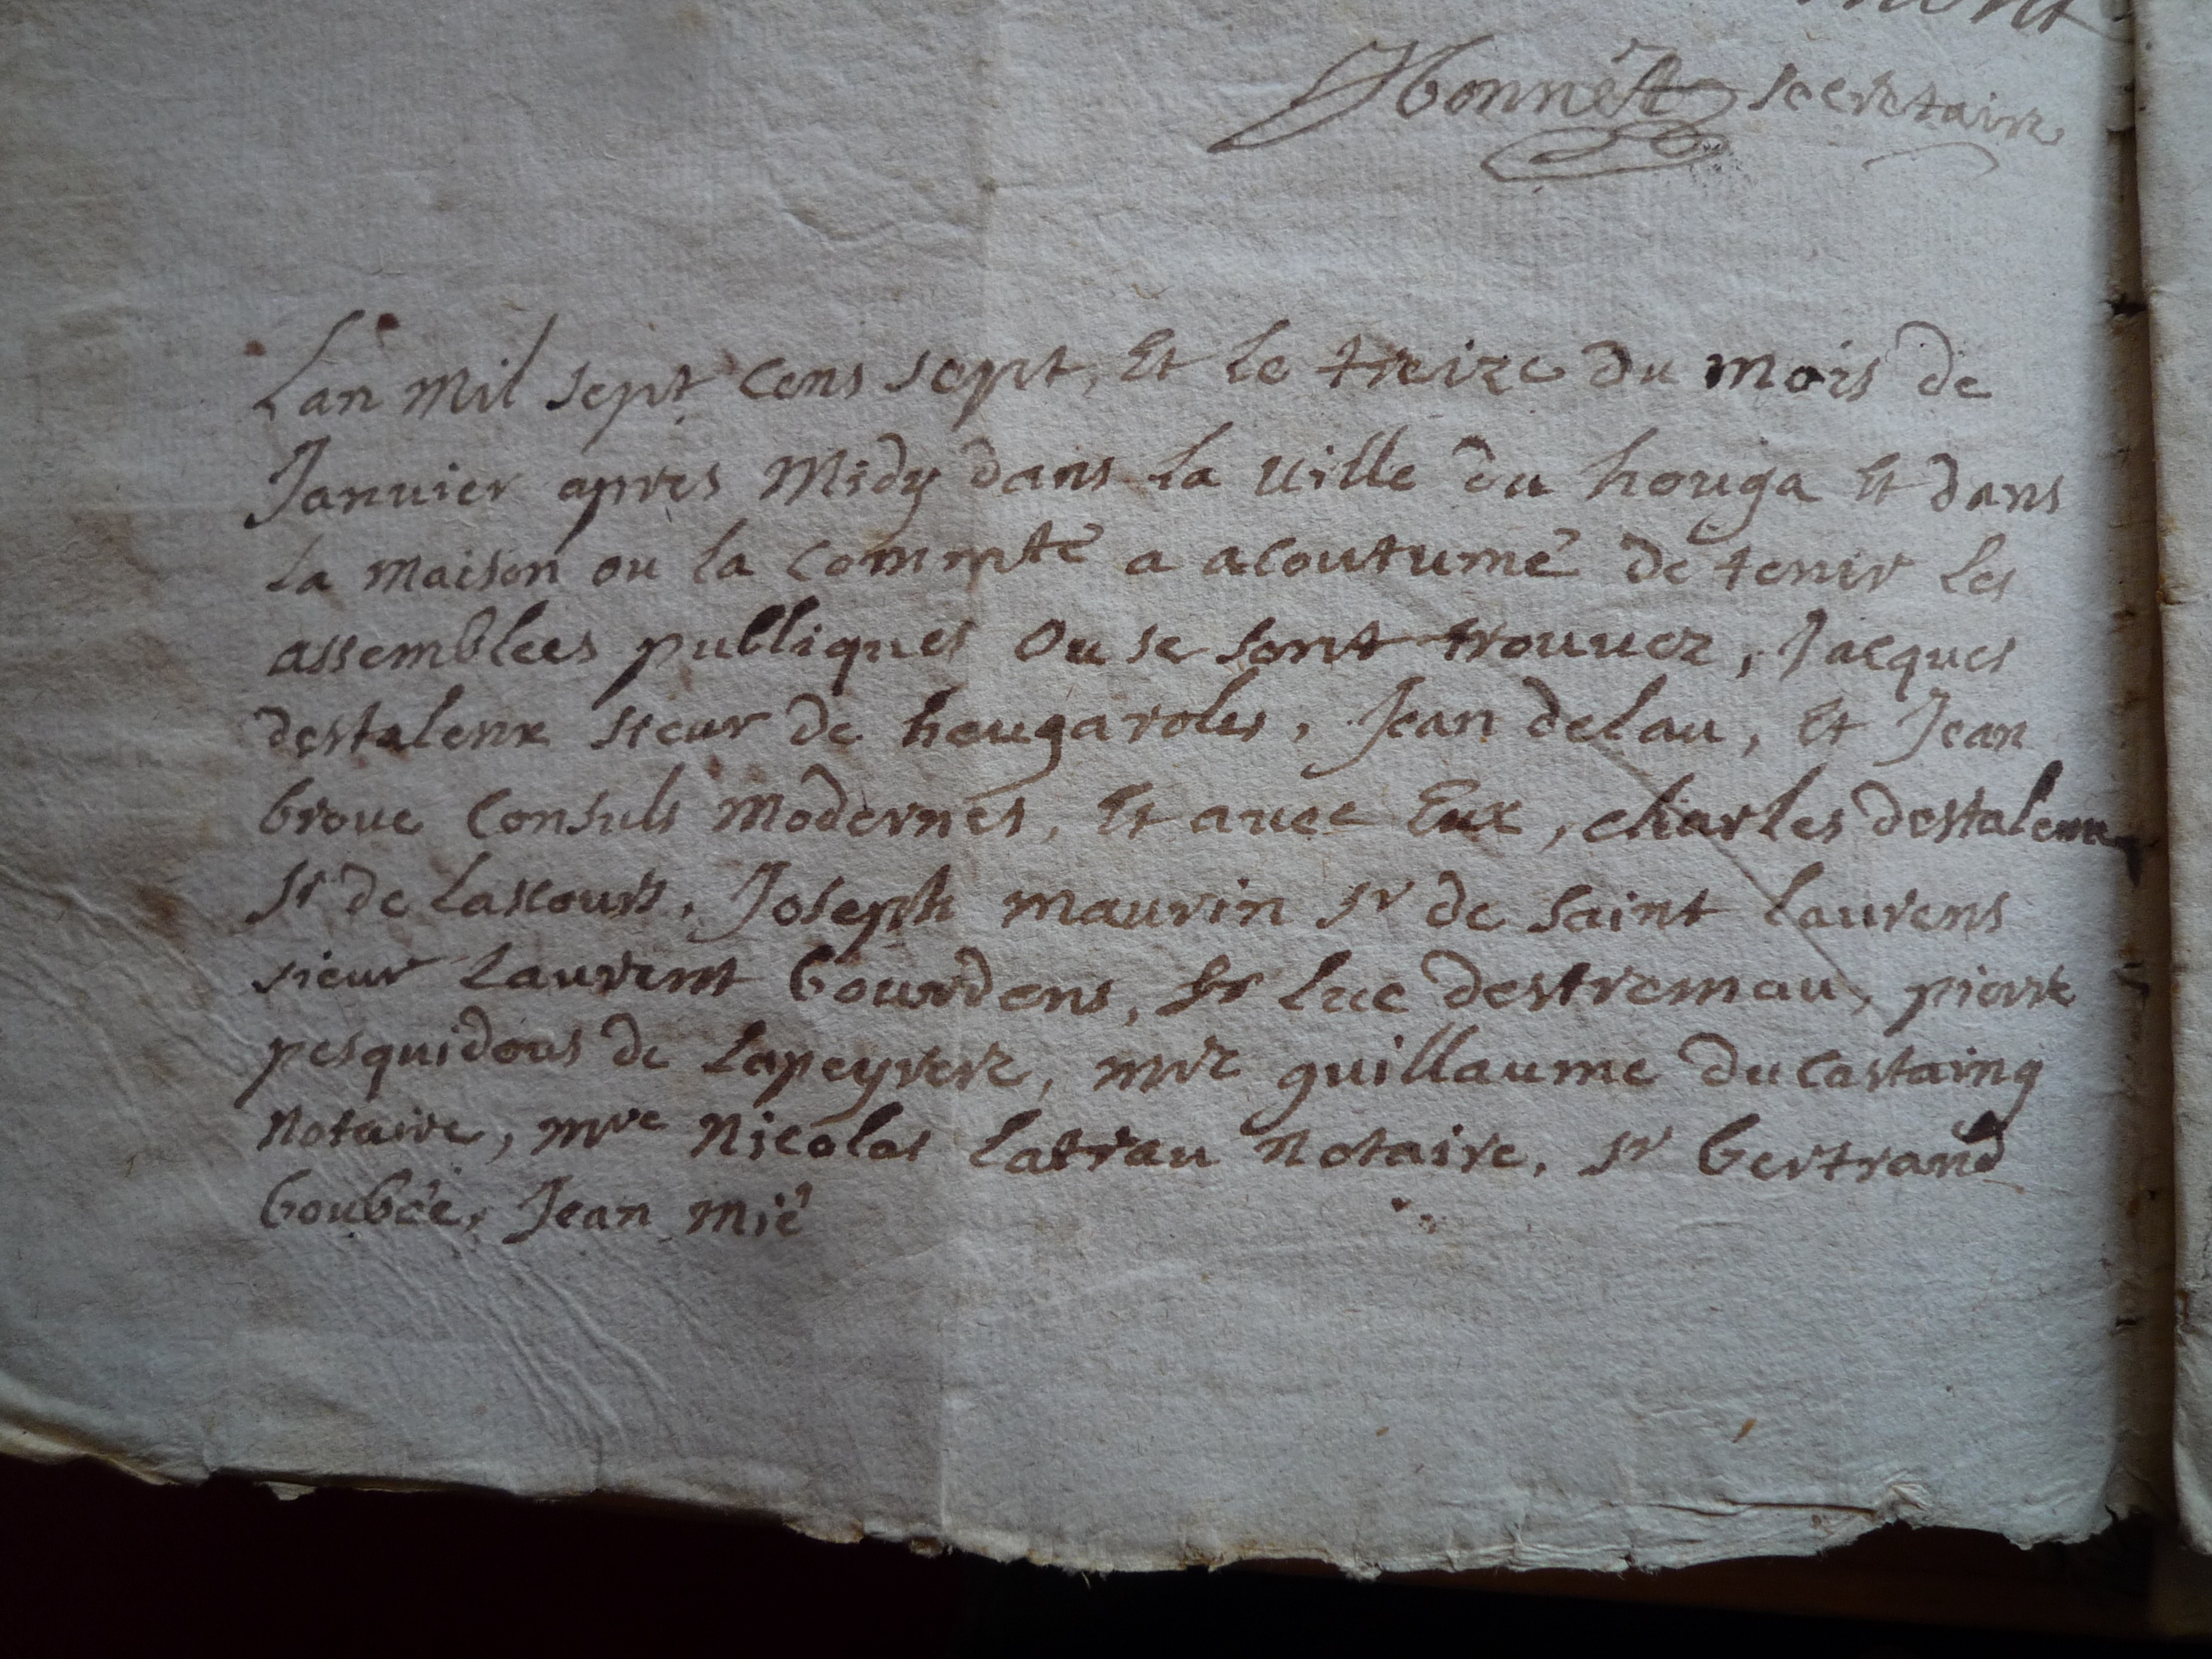 secretaire
Lan mil sept cens sept, Et le treize du mois de
Januier apres Midy dans la uille du houga Et dans
la maison ou la commpté a acoutumé de tenir les
assemblees publiques ou se sont trouuez, Jacques
destalenx sieur de heugaroles, Jean delau, Et Jean
broue Consuls modernes, Et auec Eux, charles destalenx
sr de Lascours, Joseph maurin sr de saint Laurens
sieur Laurent bourdens, sr Luc destremau, pierre
pesquidous de Lapeyrere, mre guillaume ducastaing
notaire, mre Nicolas Latrau notaire, sr bertrand
boubée, Jean Mié